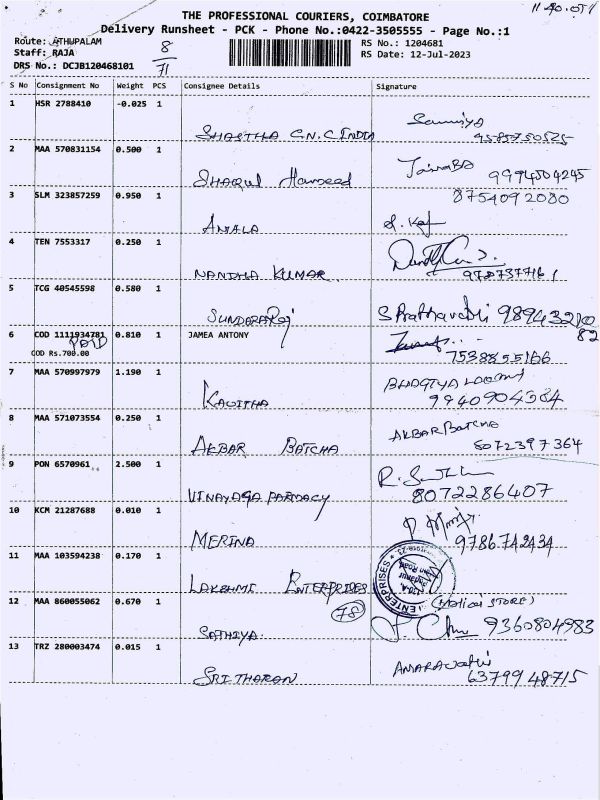 11.40.
THE PROFESSIONAL COURIERS, COIMBATORE
Delivery Runsheet - PCK - Phone No.:0422-3505555 - Page No.:1
Route: ATHUPALAM
Staff: RAJA
DRS No.: DCJB120468101
8
71
RS No.: 1204681
RS Date: 12-Jul-2023
S No Consignment No Weight PCS Consignee Details Signature
1 HSR 2788410 -0.025 1
SHASTHA C.N.C INDIA Sowmiya
2 MAA 570831154 0.500 1
SHAQUL Hameed 9994504245
3 SLM 323857259 0.950 1 8754092080
ANJALA
4 TEN 7553317 0.250 1
NANDHA KUMAR
5 TCG 40545598 0.580 1
SUNDARARAJ S Prabhavathi 9894321082
6 COD 1111934781 0.810 1 JAMEA ANTONY
PAID
COD Rs.700.00 7538855166
7 MAA 570997979 1.190 1
KAVITHA 9940904364
8 MAA 571073554 0.250 1 AKBAR Batcha
AKBAR BATCHA 8072397364
9 PON 6570961 2.500 1
VINAYAGA PARMACY 8072286407
10 KCM 21287688 0.010 1
MERINA 9786742434
11 MAA 103594238 0.170 1
LAKSHMI ENTERPRISES ENTERPRISES
78
12 MAA 860055062 0.670 1 STORE)
SATHIYA 9360804983
13 TRZ 280003474 0.015 1
SRITHARAN 6379948715